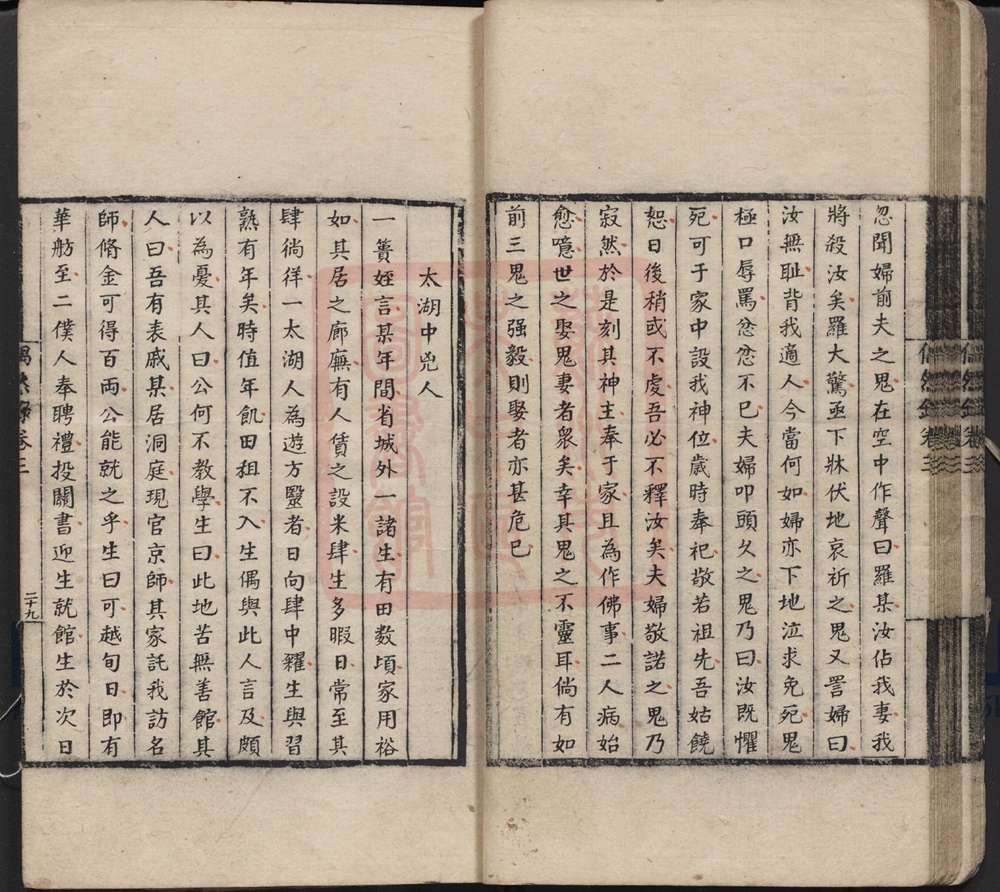 忽聞婦前夫之鬼在空中作聲曰羅某汝佔我妻我
將殺汝矣羅大驚亟下牀伏地哀祈之鬼又詈婦曰
汝無恥背我適人今當何如婦亦下地泣求免死鬼
極口辱罵忿忿不已夫婦叩頭久之鬼乃曰汝既懼
死可于家中設我神位歲時奉祀敬若祖先吾姑饒
恕日後稍或不虔吾必不釋汝矣夫婦敬諾之鬼乃
寂然於是刻其神主奉于家且為作佛事二人病始
愈噫世之娶鬼妻者衆矣幸其鬼之不靈耳倘有如
前三鬼之强毅則娶者亦甚危已
太湖中兇人
一簣姪言某年間省城外一諸生有田数頃家用裕
如其居之廊廡有人賃之設米肆生多暇日常至其
肆徜徉一太湖人為遊方毉者日向肆中糴生與習
熟有年矣時值年飢田租不入生偶與此人言及頗
以為憂其人曰公何不教學生曰此地苦無善館其
人曰吾有表戚某居洞庭現官京師其家託我訪名
師脩金可得百両公能就之乎生曰可越旬日即有
華舫至二僕人奉聘禮投關書迎生就館生於次日
卷三
二十九